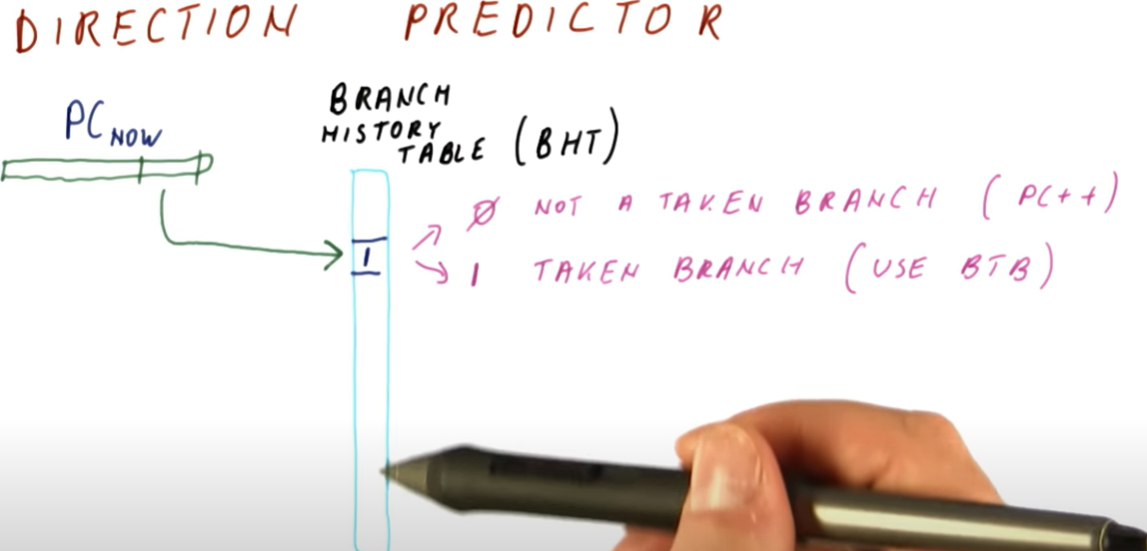 DIRECTION PREDICTOR
PC NOW
BRANCH
HISTORY
TABLE (BHT)
0 NOT A TAKEN BRANCH (PC++)
1
1 TAKEN BRANCH (USE BTB)